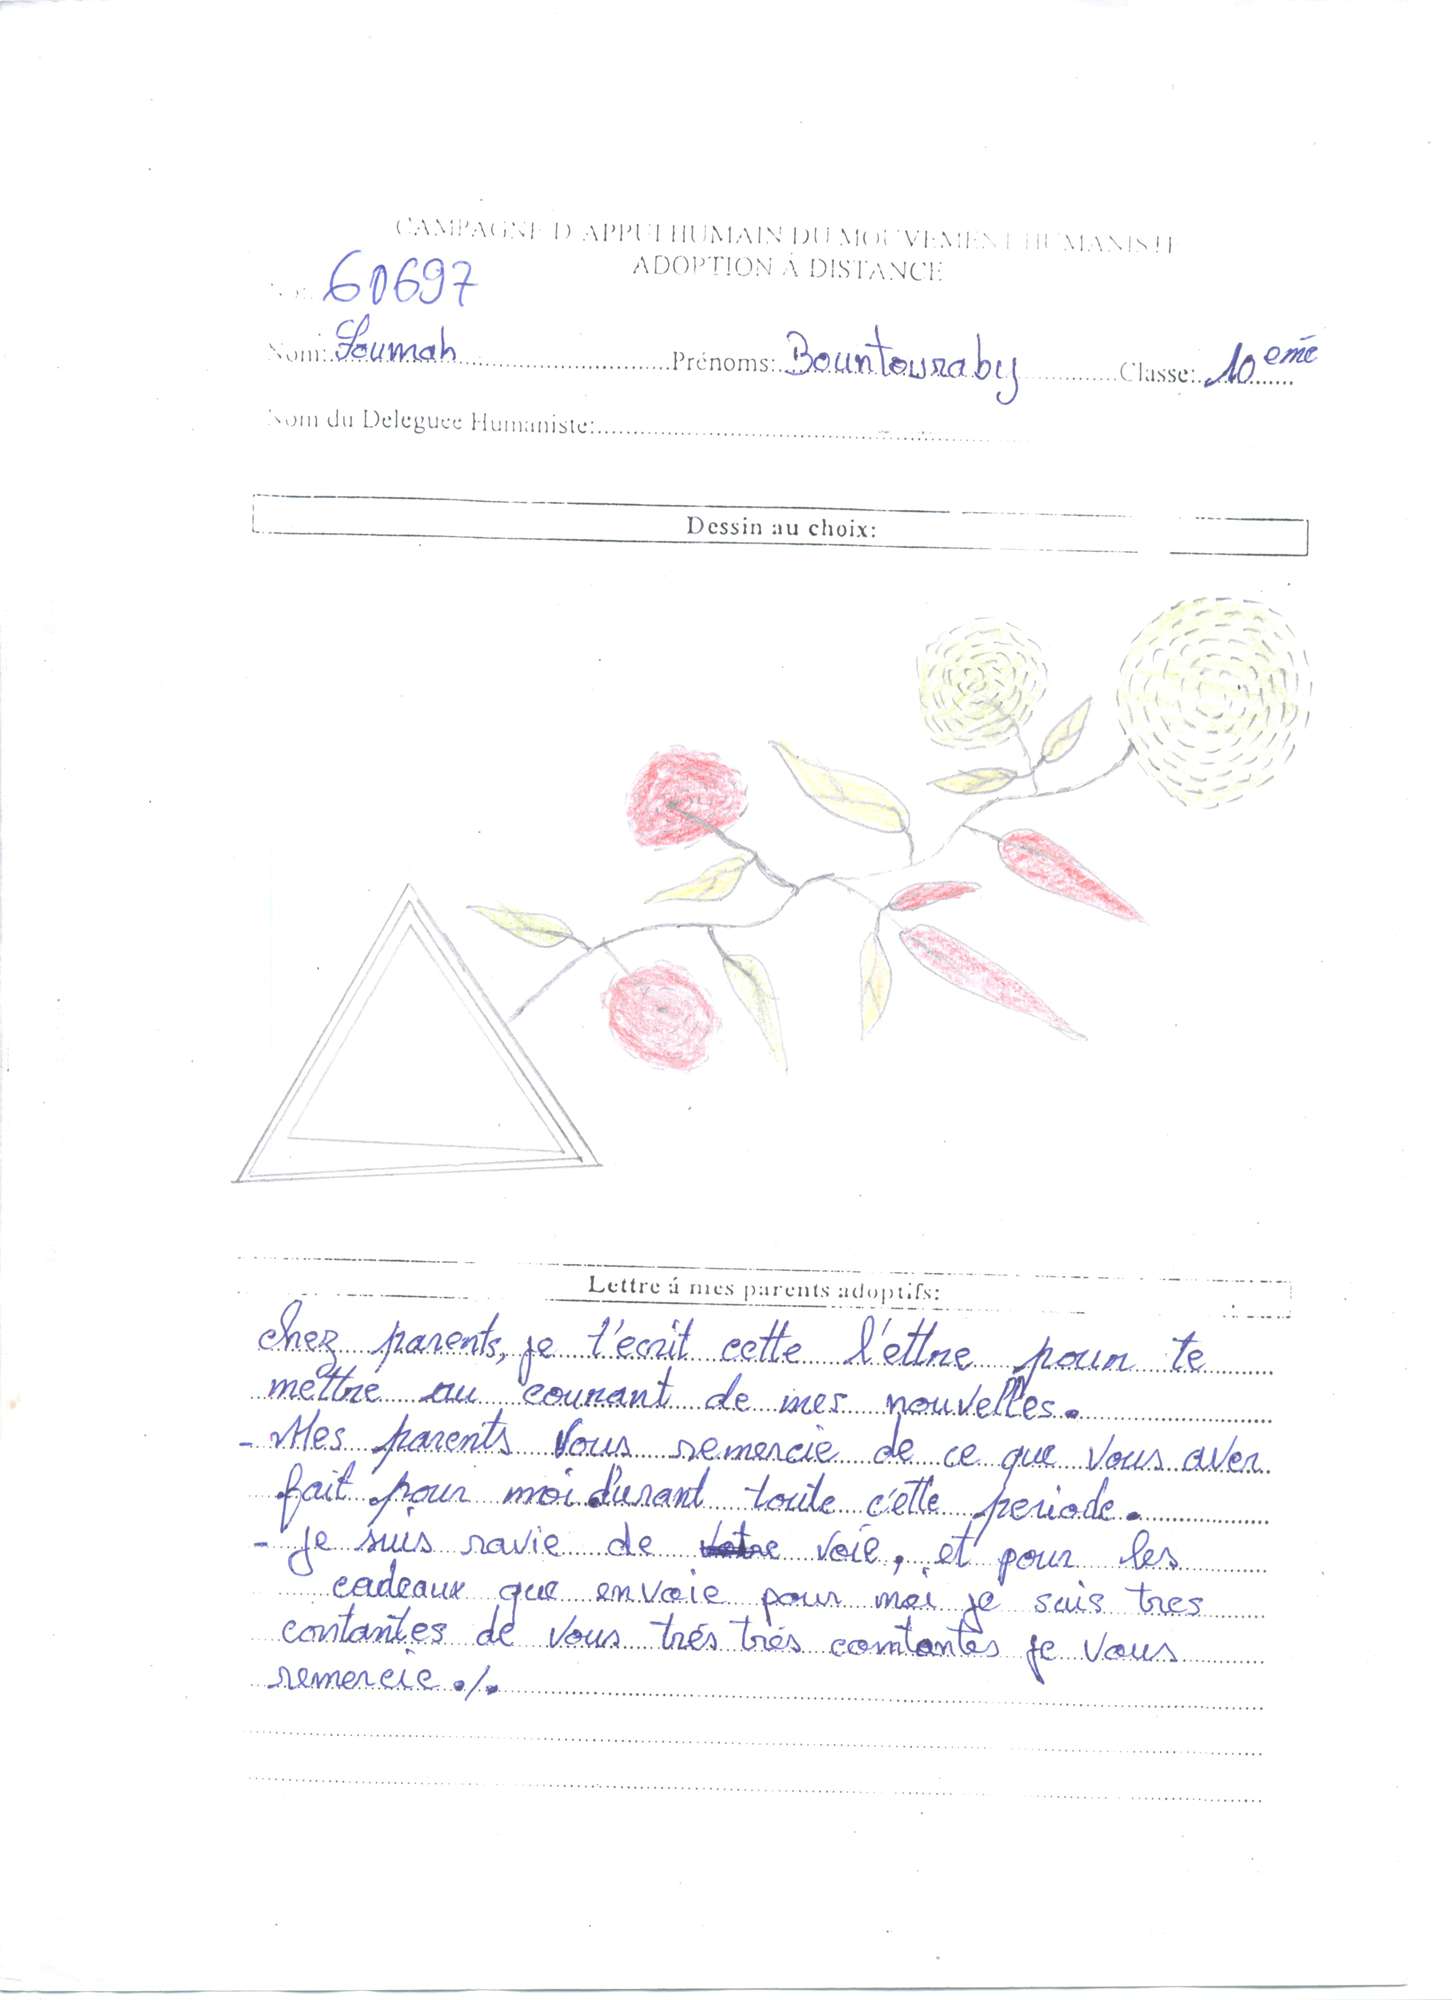 CAMPAGNE D'APPUI HUMAIN DU MOUVEMENT HUMANISTE
ADOPTION À DISTANCE
60697
Nom: Soumah Prénoms: Bountouraby Classe: 10 eme
Nom du Deleguee Humaniste:
Dessin au choix:
Lettre á mes parents adoptifs:
chez parents, je t'ecrit cette l'ettre pour te
mettre au courant de mes nouvelles.
- Mes parents vous remercie de ce que vous aver
fait pour moi durant toute c'ette periode.
- Je suis ravie de voie, et pour les
cadeaux que envoie pour moi je suis tres
contantes de vous trés trés comtantes je vous
remercie ./.